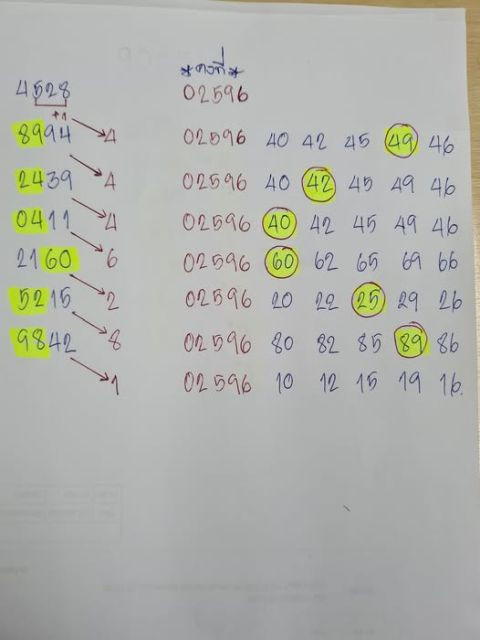 *คงที่*
4528 02596
+1
8994 4 02596 40 42 45 49 46
2439 4 02596 40 42 45 49 46
0411 4 02596 40 42 45 49 46
2160 6 02596 60 62 65 69 66
5215 2 02596 20 22 25 29 26
9842 8 02596 80 82 85 89 86
1 02596 10 12 15 19 16.